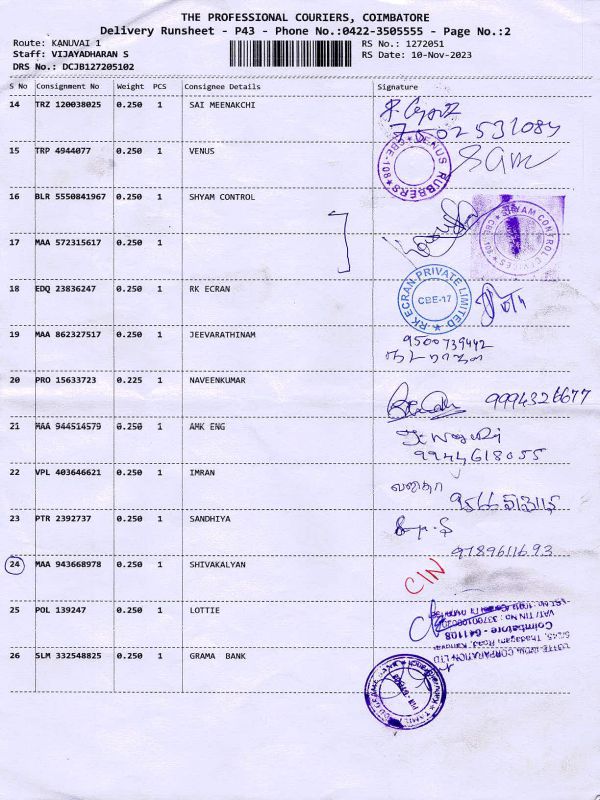 THE PROFESSIONAL COURIERS, COIMBATORE
Delivery Runsheet - P43 - Phone No.:0422-3505555 - Page No.:2
Route: KANUVAI 1
RS No.: 1272051
Staff: VIJAYADHARAN S
RS Date: 10-Nov-2023
DRS No.: DCJB127205102
S No Consignment No Weight PCS Consignee Details Signature
14 TRZ 120038025 0.250 1 SAI MEENAKCHI
7502531084
15 TRP 4944077 0.250 1 VENUS
VENUS RUBBERS CBE-108
16 BLR 5550841967 0.250 1 SHYAM CONTROL
SHYAM CONTROL
17 MAA 572315617 0.250 1
18 EDQ 23836247 0.250 1 RK ECRAN
RK ECRAN PRIVATE LIMITED
CBE-17
19 MAA 862327517 0.250 1 JEEVARATHINAM
9500739442
20 PRO 15633723 0.225 1 NAVEENKUMAR
9994326677
21 MAA 944514579 0.250 1 AMK ENG
9944618055
22 VPL 403646621 0.250 1 IMRAN
23 PTR 2392737 0.250 1 SANDHIYA
9789611693
24 MAA 943668978 0.250 1 SHIVAKALYAN
CIN
25 POL 139247 0.250 1 LOTTIE
Coimbatore - 641108
26 SLM 332548825 0.250 1 GRAMA BANK